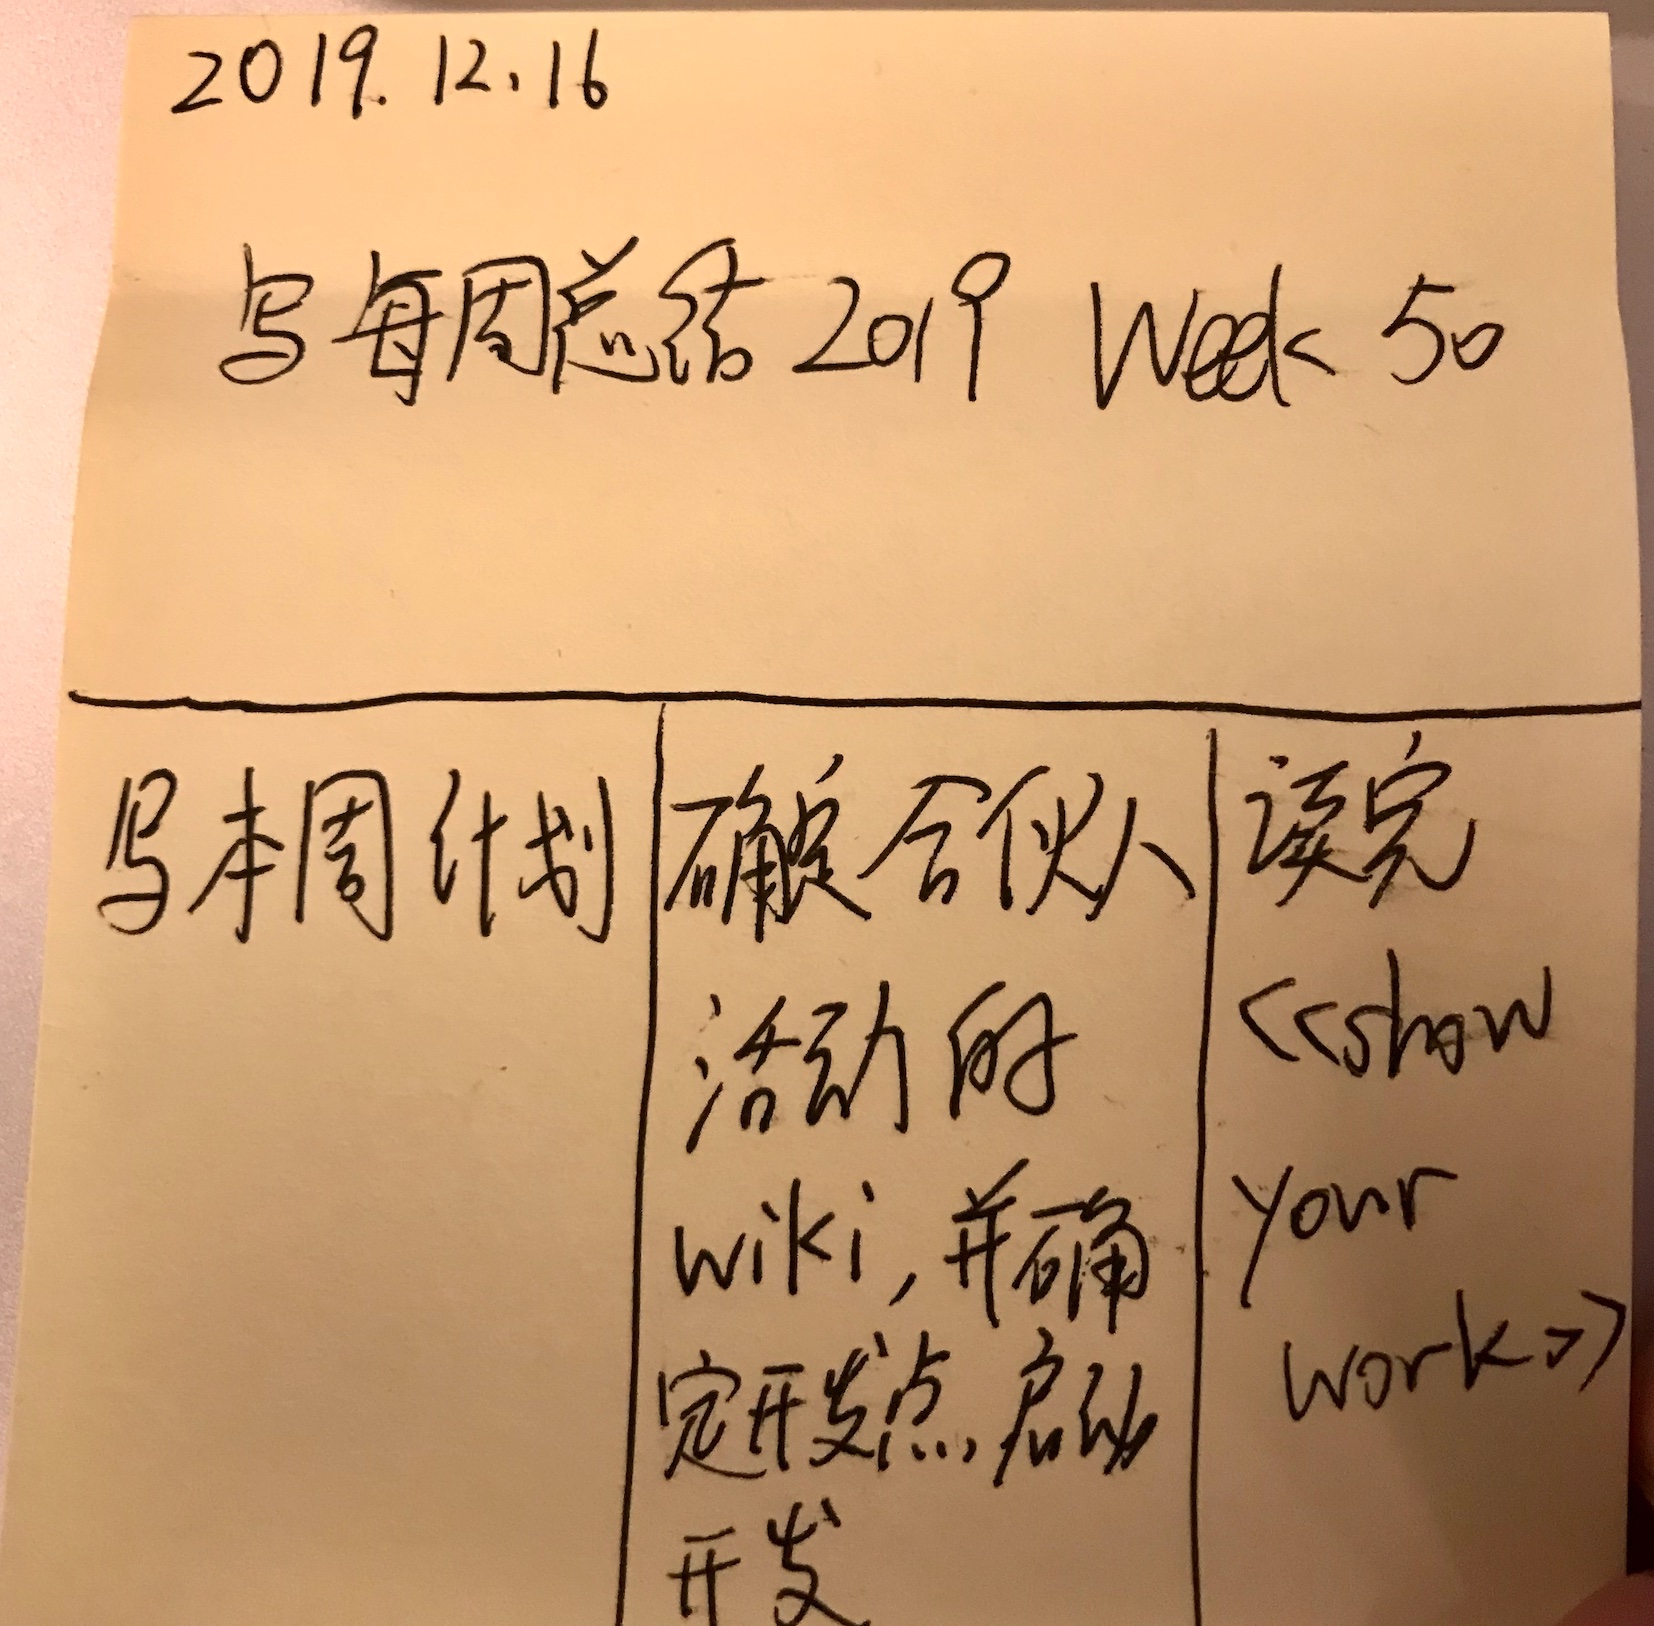 2019.12.16
写每周总结 2019 Week 50
写本周计划
确定合伙人
活动的
wiki, 并确
定开发点, 启动
开发
读完
<<show
your
work>>